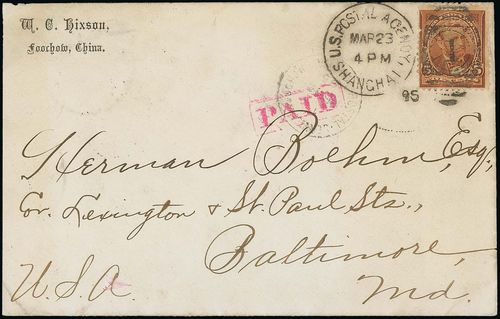 W. C. Hixson,
Foochow, China.
U.S. POSTAL AGENCY
MAR 23
4 PM
95
SHANGHAI
1
5 5
PAID
Herman Boehm, Esq.,
Cor. Lexington & St. Paul Sts.,
Baltimore,
Md.
U.S.A.